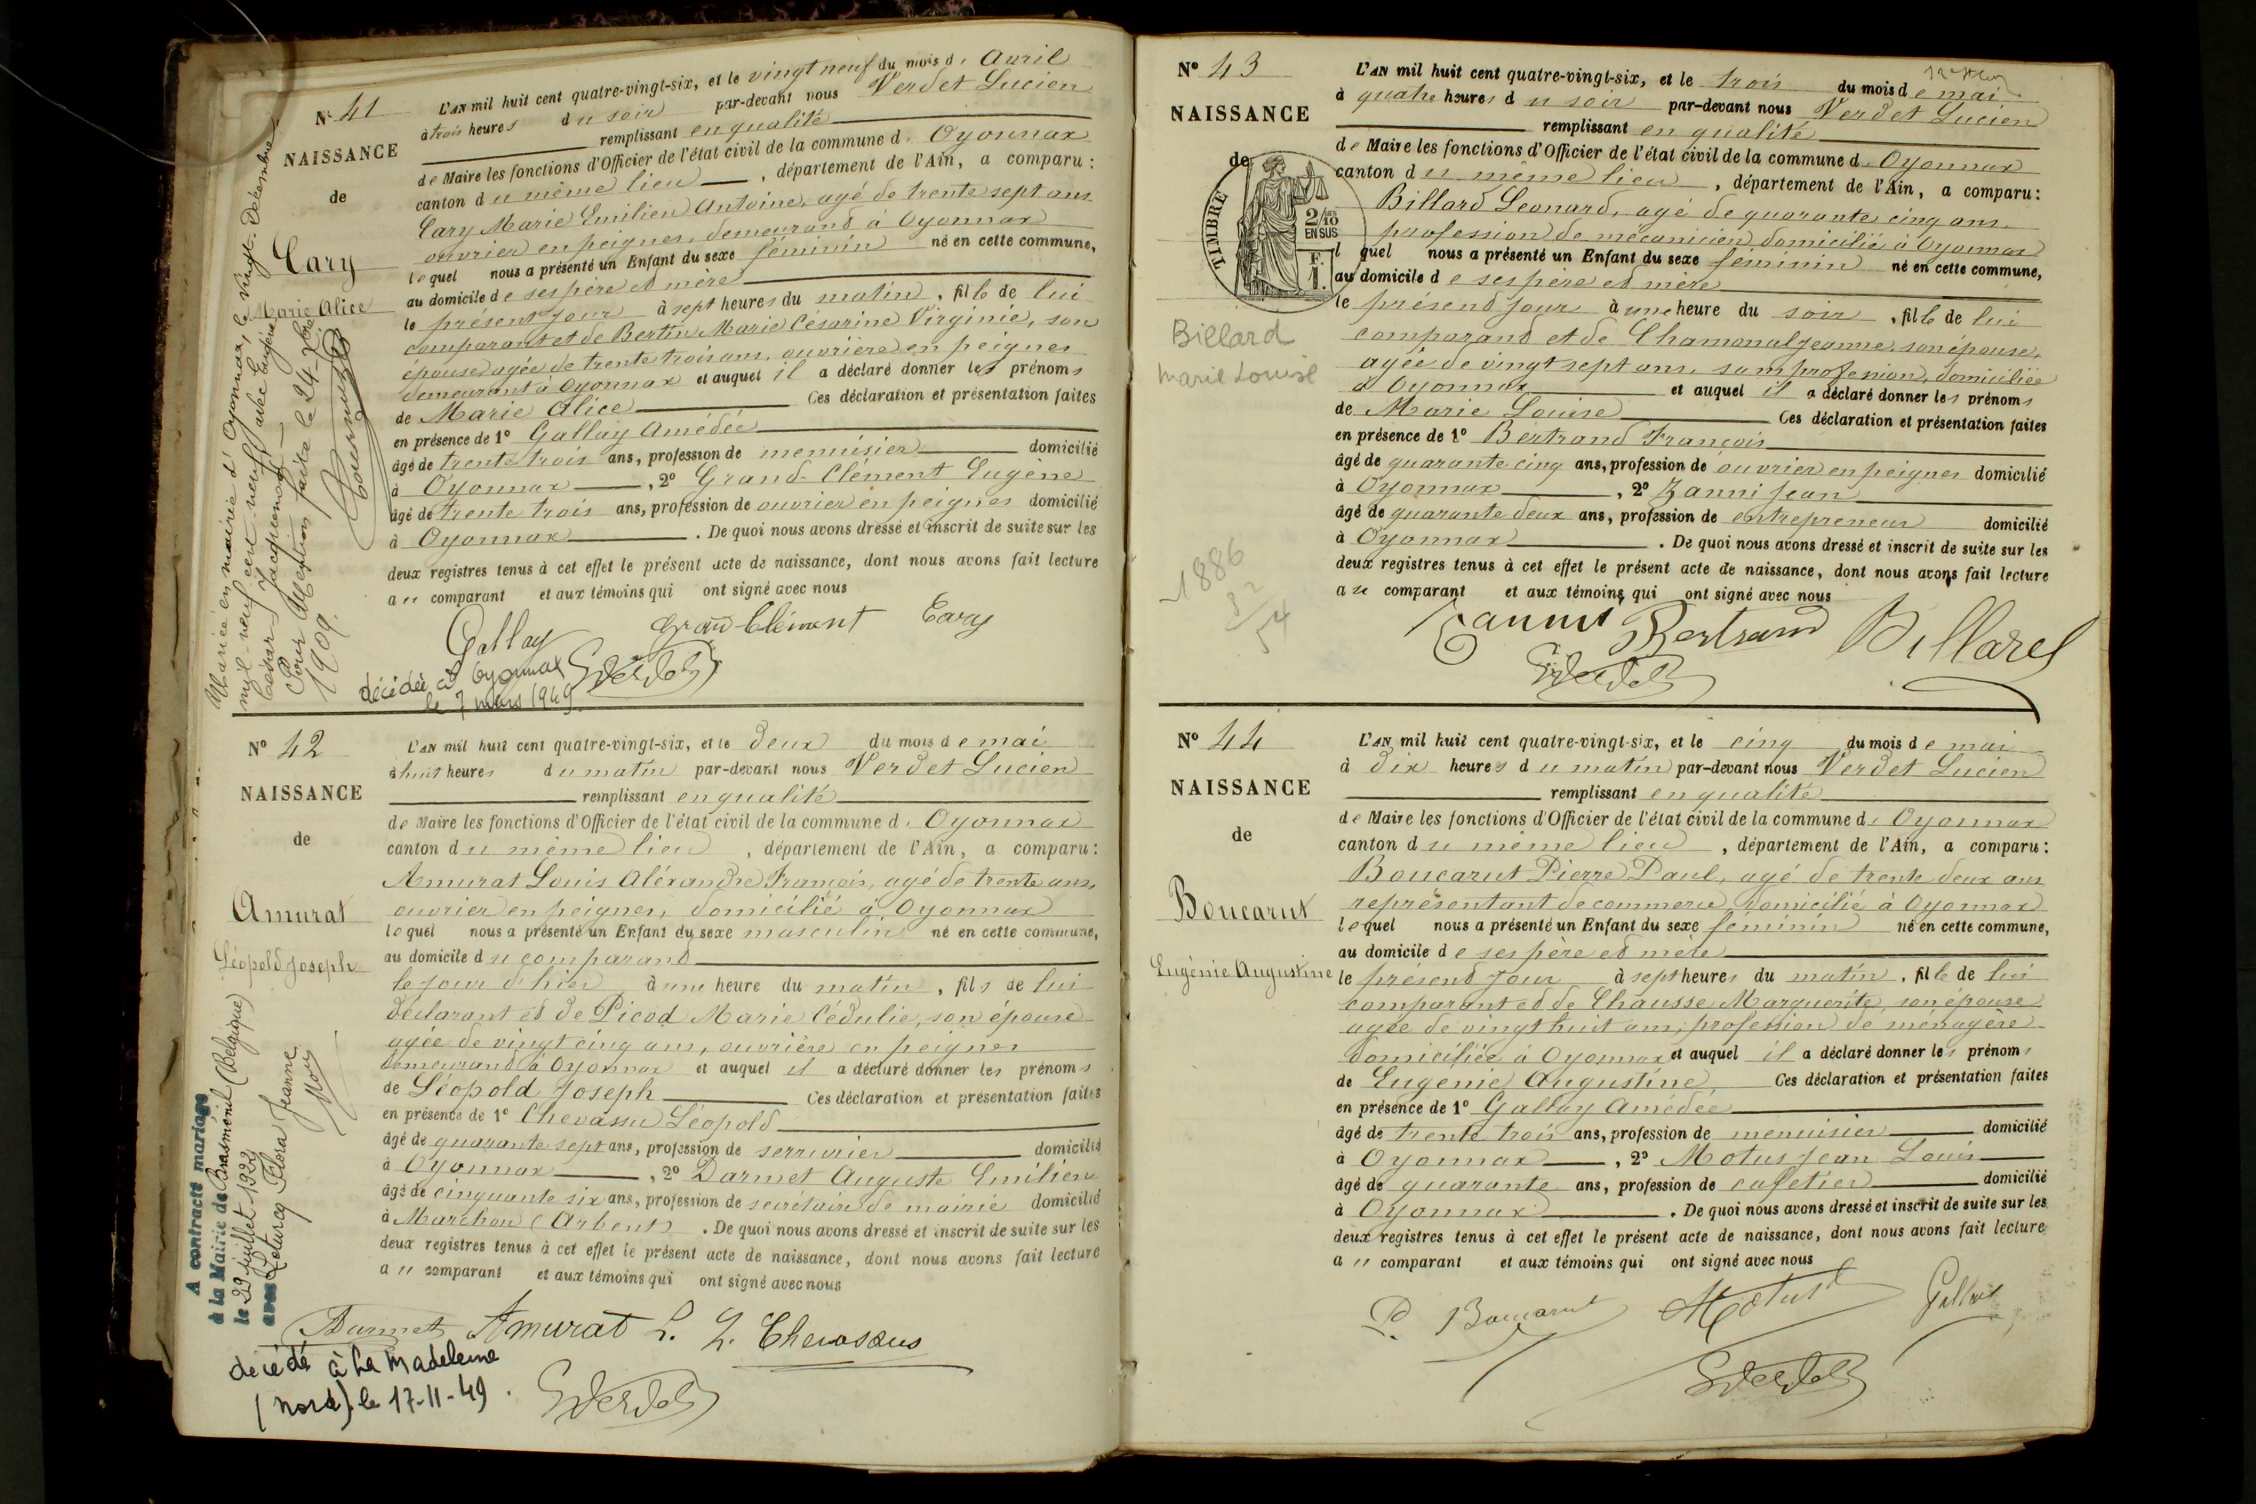 N° 41
NAISSANCE
de
Cary
Marie Alice
L'AN mil huit cent quatre-vingt-six, et le vingt neuf du mois d' Avril
à trois heures du soir par-devant nous Verdet Lucien
remplissant en qualité
de Maire les fonctions d'Officier de l'état civil de la commune d' Oyonnax
canton du même lieu, département de l'Ain, a comparu :
Cary Marie Emilien Antoine, agé de trente sept ans
ouvrier en peignes, demeurand à Oyonnax
lequel nous a présenté un Enfant du sexe féminin né en cette commune,
au domicile de ses père et mère
le présent jour à sept heures du matin, fille de lui
comparant et de Bertin Marie Césarine Virginie, son
épouse agée de trente trois ans, ouvrière en peignes
demeurant à Oyonnax et auquel il a déclaré donner les prénoms
de Marie Alice Ces déclaration et présentation faites
en présence de 1° Gallay Amédée
âgé de trente trois ans, profession de menuisier domicilié
à Oyonnax, 2° Grand-Clément Eugène
âgé de trente trois ans, profession de ouvrier en peignes domicilié
à Oyonnax. De quoi nous avons dressé et inscrit de suite sur les
deux registres tenus à cet effet le présent acte de naissance, dont nous avons fait lecture
au comparant et aux témoins qui ont signé avec nous
Gallay Grand Clément Cary
Verdet
décédée à Oyonnax
le 7 mars 1949.
Mariée en mairie d'Oyonnax, le vingt Décembre
mil neuf cent neuf avec Eugène
César Jacquemoz
Pour mention faite le 24 Xbre
1909.
N° 42
NAISSANCE
de
Amurat
Léopold Joseph
L'AN mil huit cent quatre-vingt-six, et le deux du mois de mai
à huit heures du matin par-devant nous Verdet Lucien
remplissant en qualité
de Maire les fonctions d'Officier de l'état civil de la commune d' Oyonnax
canton du même lieu, département de l'Ain, a comparu :
Amurat Louis Aléxandre François, agé de trente ans,
ouvrier en peignes, domicilié à Oyonnax
lequel nous a présenté un Enfant du sexe masculin né en cette commune,
au domicile du comparand
le jour d'hier à une heure du matin, fils de lui
déclarant et de Picod Marie Cédulie, son épouse
agée de vingt cinq ans, ouvrière en peignes
demeurand à Oyonnax et auquel il a déclaré donner les prénoms
de Léopold Joseph Ces déclaration et présentation faites
en présence de 1° Chevassu Léopold
âgé de quarante sept ans, profession de serrurier domicilié
à Oyonnax, 2° Darmet Auguste Emilien
âgé de cinquante six ans, profession de secrétaire de mairie domicilié
à Marchon (Arbent). De quoi nous avons dressé et inscrit de suite sur les
deux registres tenus à cet effet le présent acte de naissance, dont nous avons fait lecture
au comparant et aux témoins qui ont signé avec nous
Darmet Amurat L. L. Chevassus
Verdet
décédé à La Madeleine
(Nord) le 17-11-49.
A contracté mariage
à la Mairie de Brasménil (Belgique)
le 29 juillet 1922
avec Leturcq Flora Jeanne
N° 43
NAISSANCE
de
TIMBRE
2/10 EN SUS
F. 1.
Billard
Marie Louise
1886
82
54
L'AN mil huit cent quatre-vingt-six, et le trois du mois de mai
à quatre heures du soir par-devant nous Verdet Lucien
remplissant en qualité
de Maire les fonctions d'Officier de l'état civil de la commune d' Oyonnax
canton du même lieu, département de l'Ain, a comparu :
Billard Leonard, agé de quarante cinq ans
profession de mécanicien domicilié à Oyonnax
l quel nous a présenté un Enfant du sexe féminin né en cette commune,
au domicile de ses père et mère
le présend jour à une heure du soir, fille de lui
comparand et de Chamonal Jeanne, son épouse,
agée de vingt sept ans, sans profession, domiciliée
à Oyonnax et auquel il a déclaré donner les prénoms
de Marie Louise Ces déclaration et présentation faites
en présence de 1° Bertrand François
âgé de quarante cinq ans, profession de ouvrier en peignes domicilié
à Oyonnax, 2° Zanni Jean
âgé de quarante deux ans, profession de entrepreneur domicilié
à Oyonnax. De quoi nous avons dressé et inscrit de suite sur les
deux registres tenus à cet effet le présent acte de naissance, dont nous avons fait lecture
au comparant et aux témoins qui ont signé avec nous
Bertrand Billard
Verdet
N° 44
NAISSANCE
de
Boucarut
Eugénie Augustine
L'AN mil huit cent quatre-vingt-six, et le cinq du mois de mai
à dix heures du matin par-devant nous Verdet Lucien
remplissant en qualité
de Maire les fonctions d'Officier de l'état civil de la commune d' Oyonnax
canton du même lieu, département de l'Ain, a comparu :
Boucarut Pierre Paul, agé de trente deux ans
représentant de commerce, domicilié à Oyonnax
lequel nous a présenté un Enfant du sexe féminin né en cette commune,
au domicile de ses père et mère
le présend jour à sept heures du matin, fille de lui
comparant et de Chausse Marguerite son épouse
agée de vingt huit ans, profession de ménagère
domiciliée à Oyonnax et auquel il a déclaré donner les prénoms
de Eugénie Augustine Ces déclaration et présentation faites
en présence de 1° Gallay Amédée
âgé de trente trois ans, profession de menuisier domicilié
à Oyonnax, 2° Motus Jean Louis
âgé de quarante ans, profession de cafetier domicilié
à Oyonnax. De quoi nous avons dressé et inscrit de suite sur les
deux registres tenus à cet effet le présent acte de naissance, dont nous avons fait lecture
au comparant et aux témoins qui ont signé avec nous
P. Boucarut Motus Gallay
Verdet